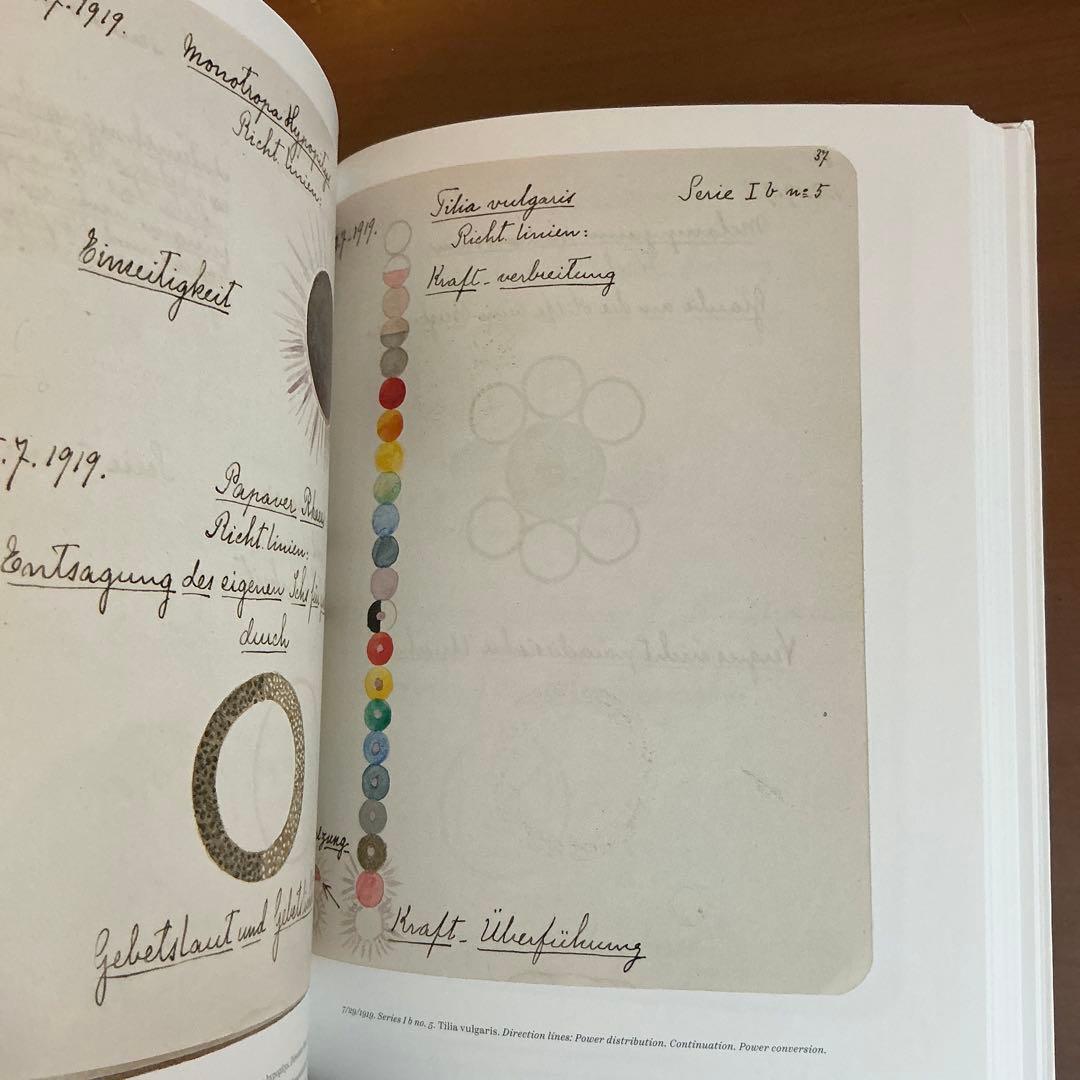 7.1919.
Monotropa Hypopitys
Richt. linien:
Einseitigkeit
.7.1919.
Papaver
Richt. linien:
Entsagung des eigenen Ichs
durch
Gebetslaut und
37
Tilia vulgaris
Serie I b no 5
.7.1919.
Richt. linien:
Kraft - verbreitung
Kraft - Überführung
7/29/1919. Series I b no. 5. Tilia vulgaris. Direction lines: Power distribution. Continuation. Power conversion.